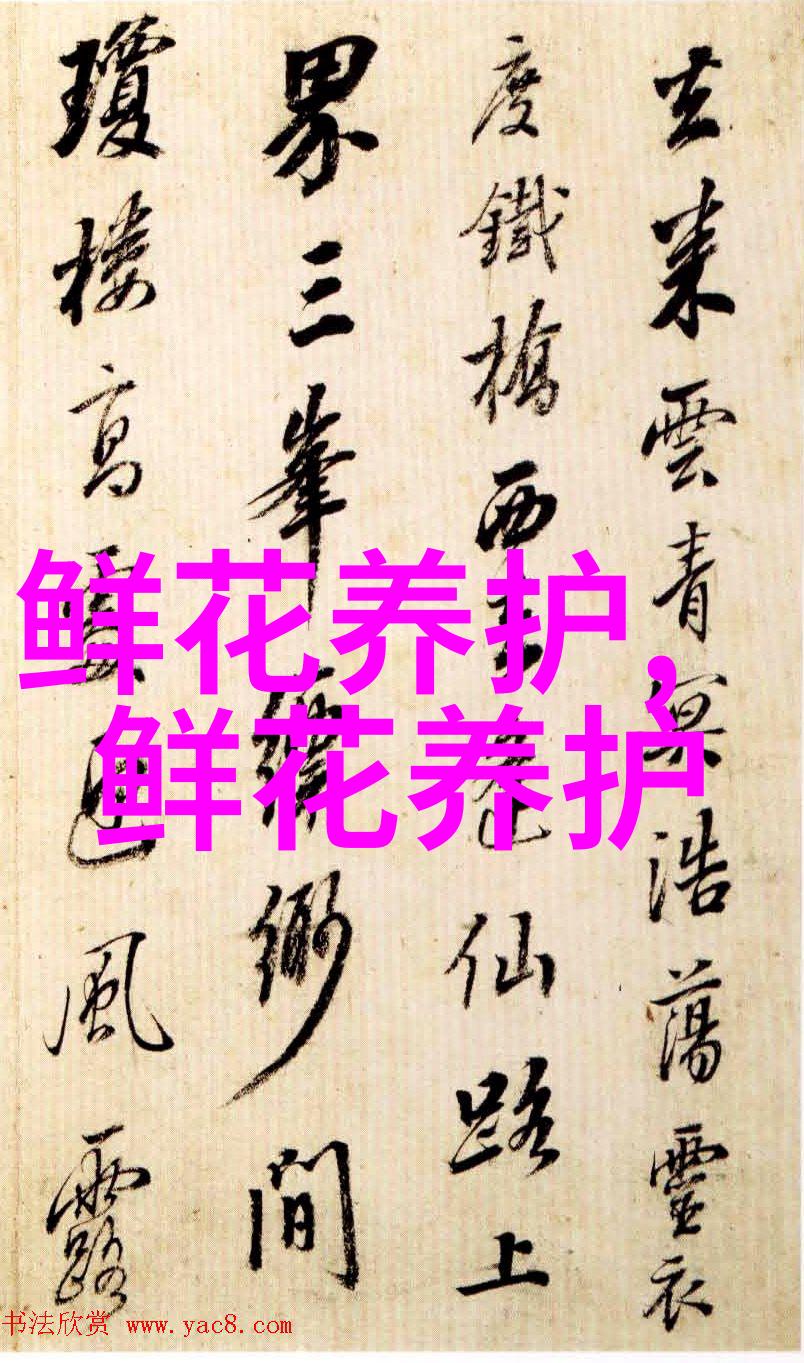 来雲青冥浩蕩靈衣
度鐵橋西仙路上
界三峯縹緲間
瓊樓高處迥風露
鲜花养护,
鲜花养护
书法欣赏 www.yac8.com